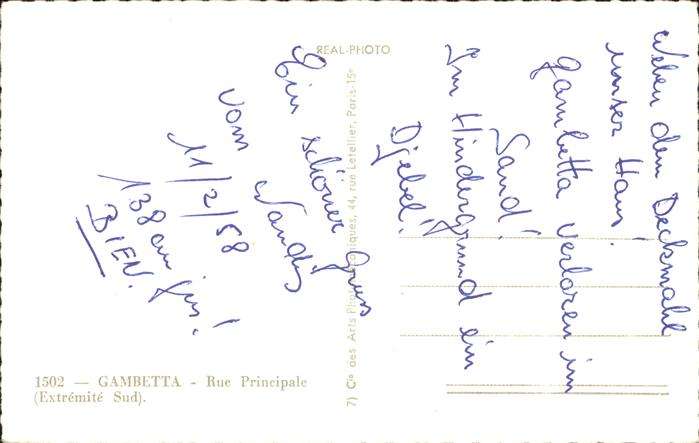 REAL-PHOTO
Neben dem Deckmahl
unser Haus!
Gambetta verloren im
Sand!
Im Hindergrund ein
Djebel!
Ein schöner Gruss
vom
11/2/58
138 am jus!
BIEN.
7) Cie des Arts Photomécaniques, 44, rue Letellier, Paris-15e
1502 — GAMBETTA - Rue Principale
(Extrémité Sud).